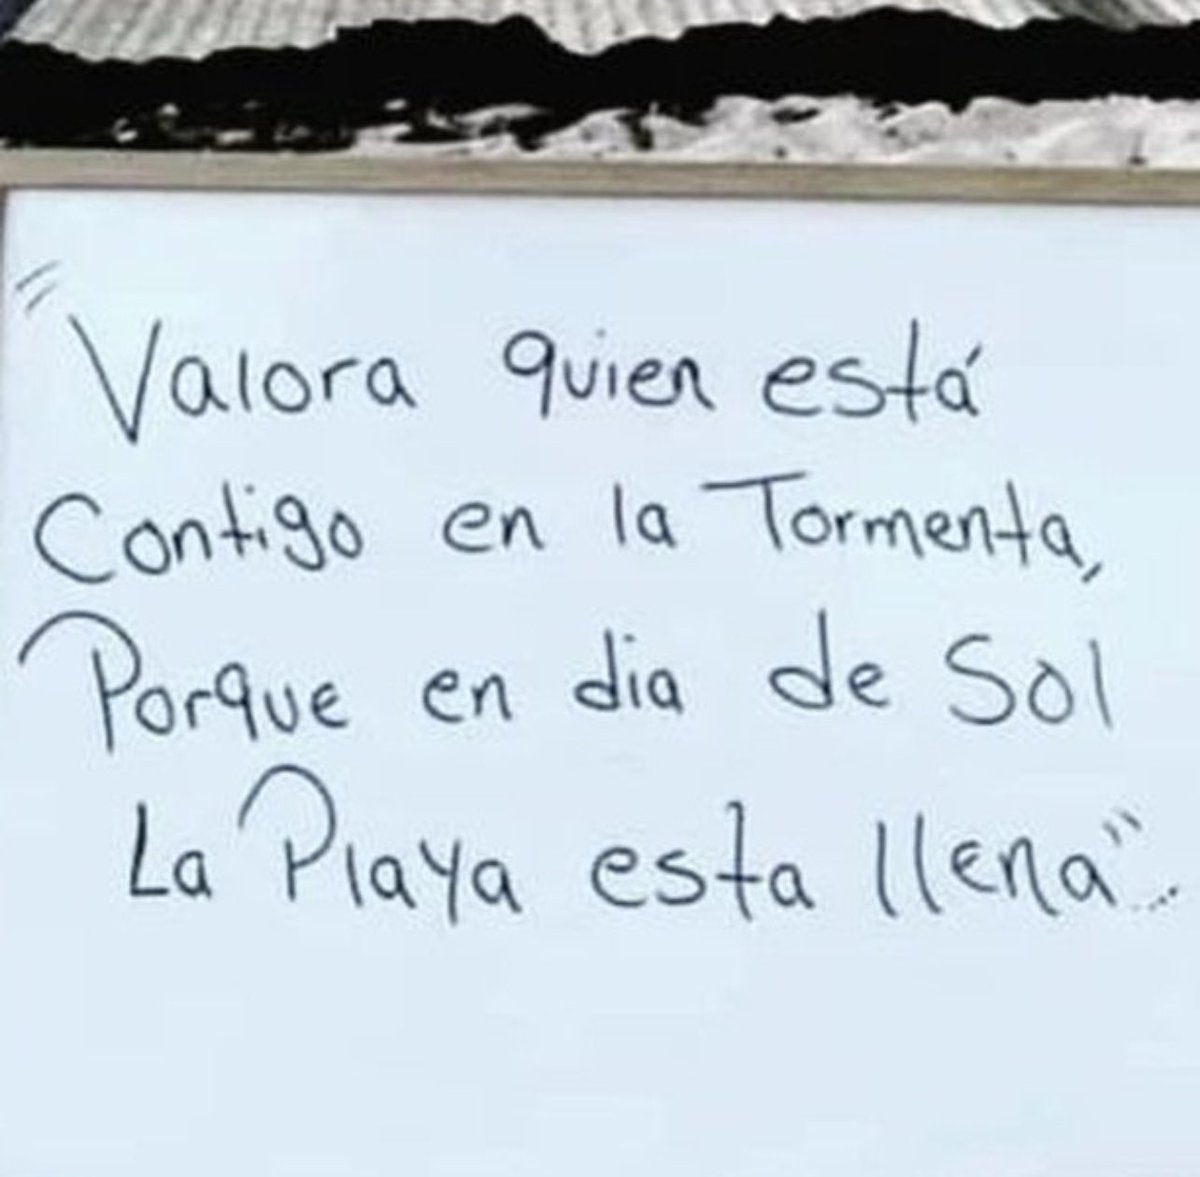 "Valora quien está
Contigo en la Tormenta,
Porque en dia de Sol
La Playa esta llena"...